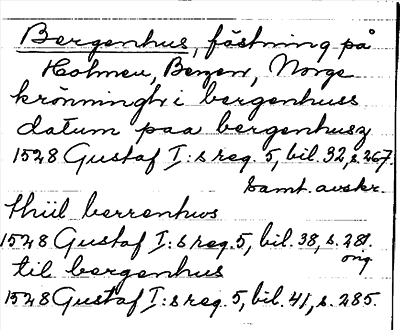 Bergenhus, fästning på
Holmen, Bergen, Norge
krönningh i bergenhuss
datum paa bergenhusz
1528 Gustaf I:s reg. 5, bil. 32, s. 267.
Samt. avskr.
thiil berrenhws
1528 Gustaf I:s reg. 5, bil. 38, s. 281.
orig
til bergenhus
1528 Gustaf I:s reg. 5, bil. 41, s. 285.